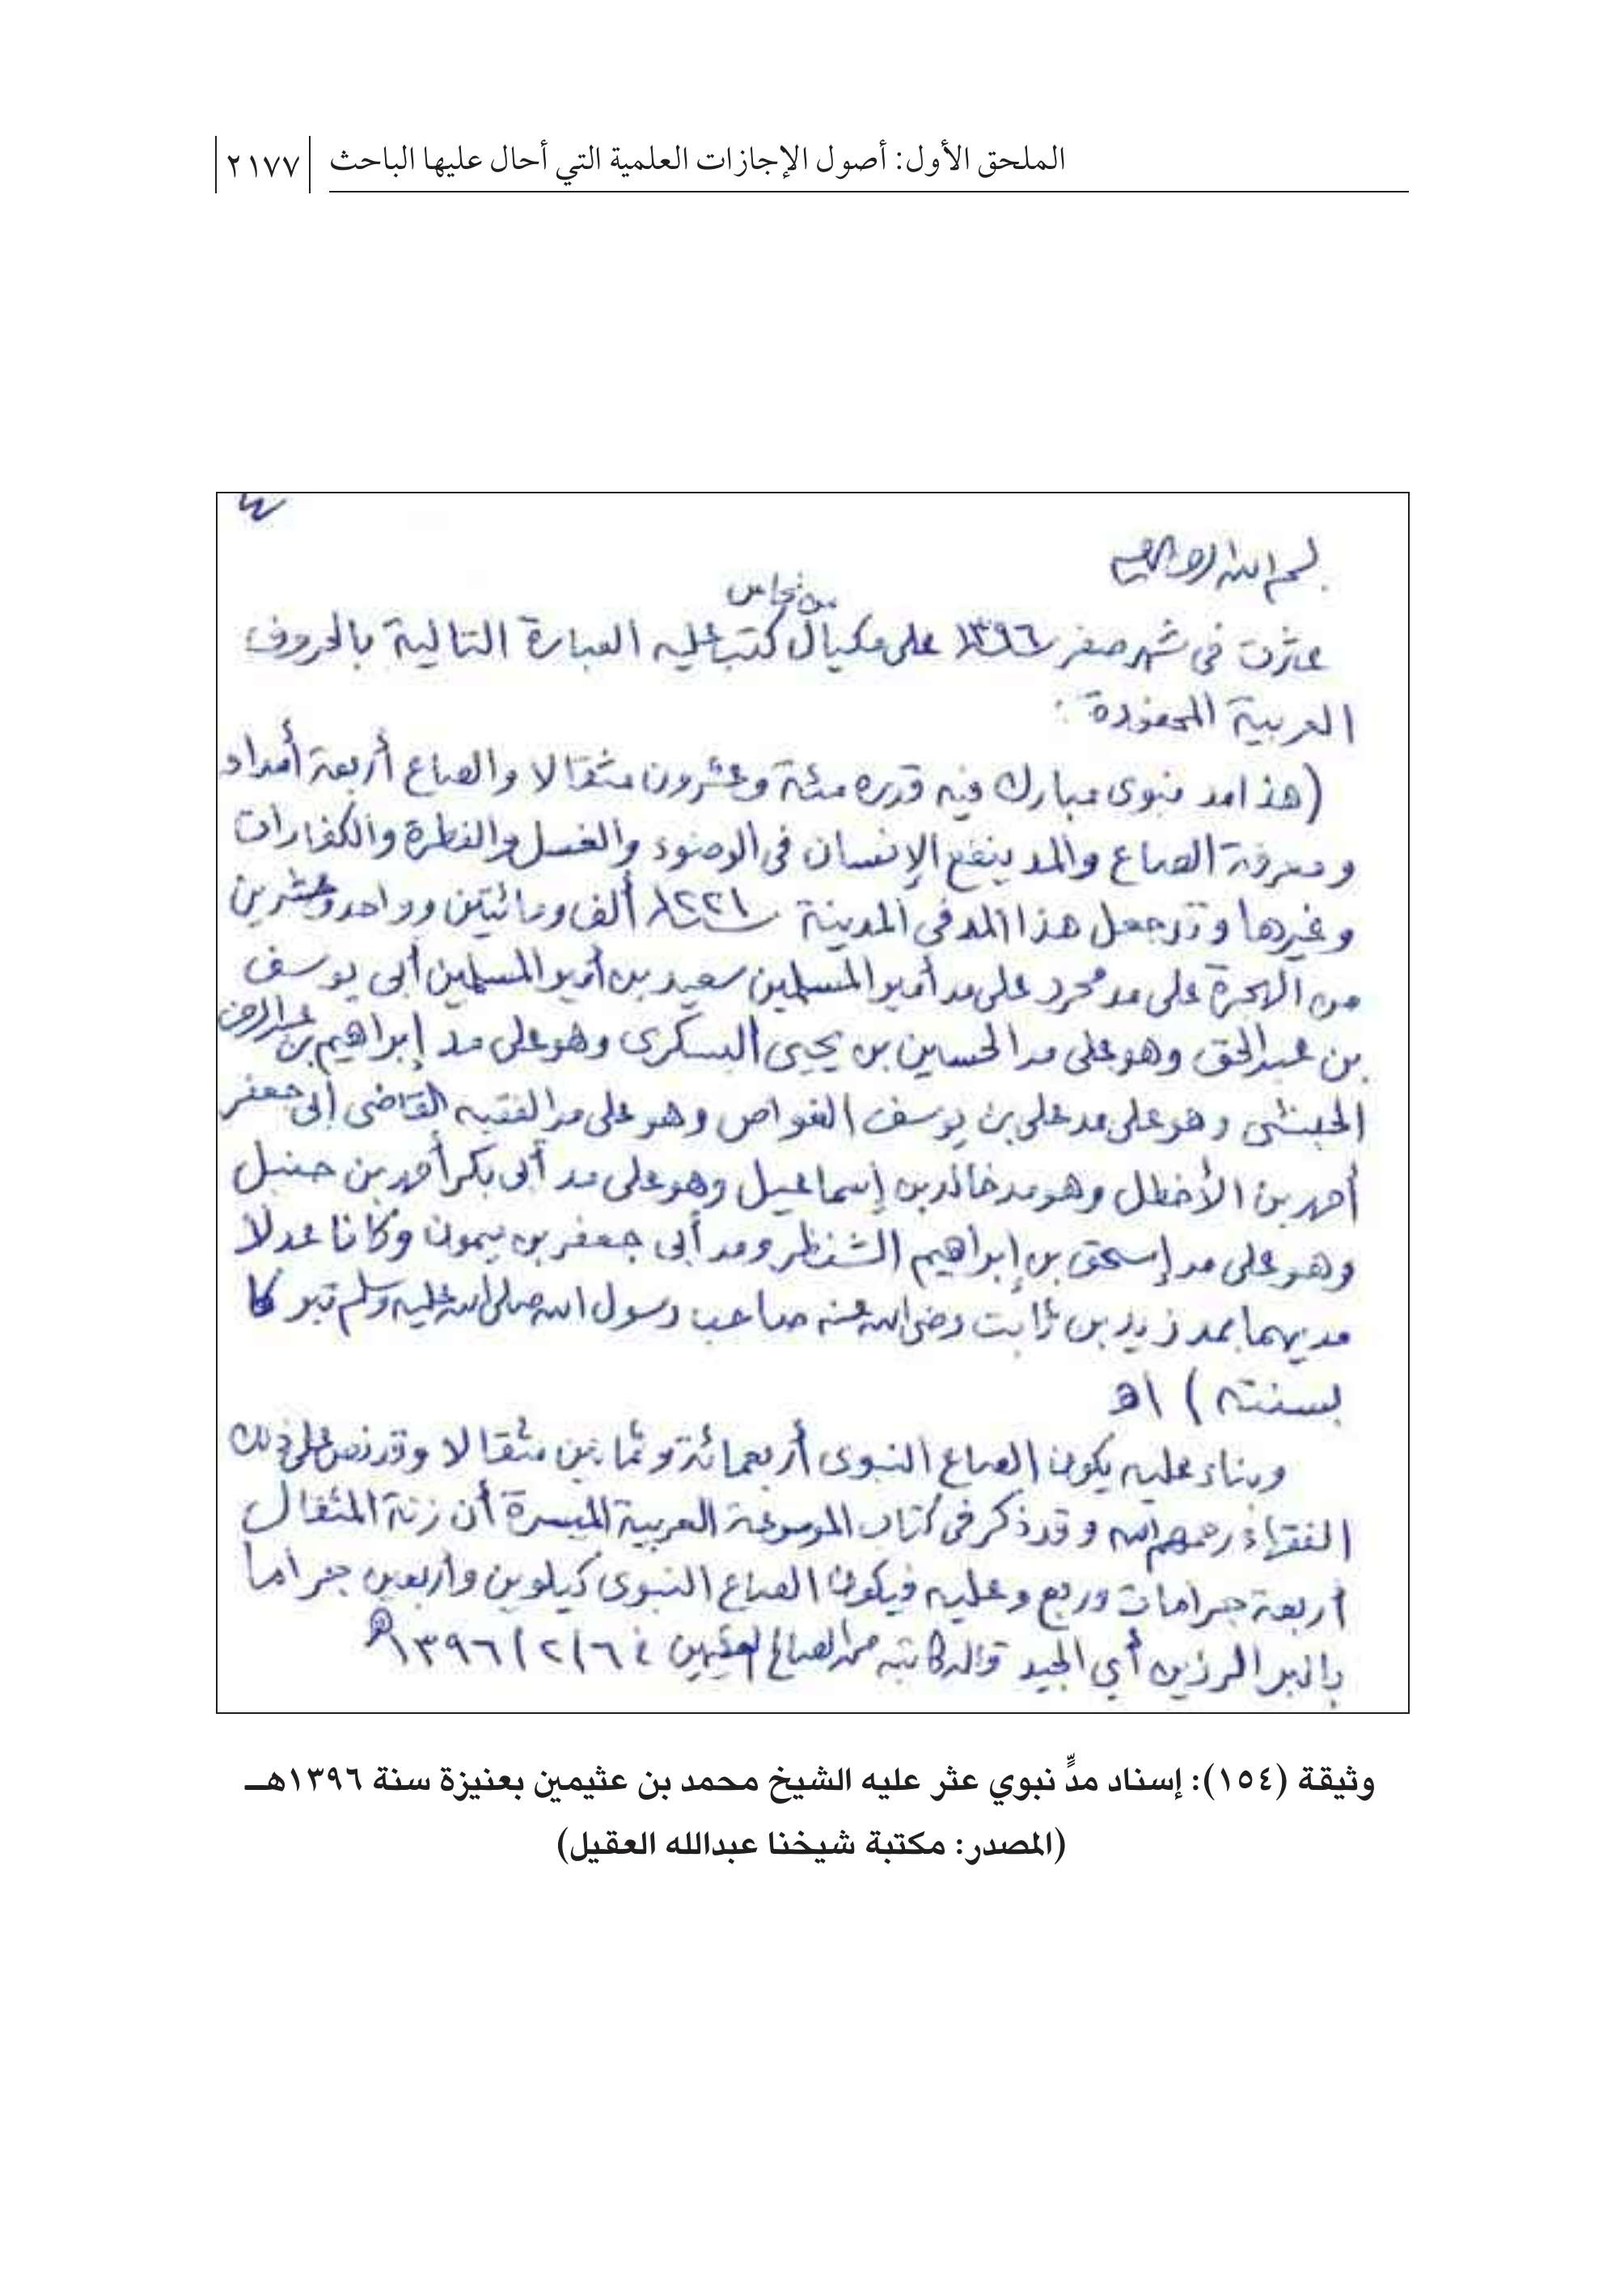 الملحق الأول: أصول الإجازات العلمية التي أحال عليها الباحث ٢١٧٧
بسم الله الرحمن الرحيم
من نحاس
عثرت فى شهر صفر ١٣٩٦ على مكيال كتب عليه العبارة التالية بالحروف
العربية المحفورة :
(هذا مد نبوى مبارك فيه قدره مئة وعشرون مثقالا والصاع أربعة أمداد
ومعرفة الصاع والمد ينفع الإنسان فى الوضوء والغسل والفطرة والكفارات
وغيرها وقد جعل هذا المد فى المدينة سنة ١٢٢١ ألف ومائتين وواحد وعشرين
من الهجرة على مد محرر على مد أمير المسلمين سعيد بن أمير المسلمين أبى يوسف
بن عبد الحق وهو على مد الحسين بن يحيى البسكرى وهو على مد إبراهيم بن عبد الرحمن
الحبشى وهو على مد على بن يوسف الغواص وهو على مد الفقيه القاضى أبى جعفر
أحمد بن الأخطل وهو مد خالد بن إسماعيل وهو على مد أبى بكر أحمد بن حنبل
وهو على مد إسحق بن إبراهيم الشنظر ومد أبى جعفر بن ميمون وكانا عدلا
مديهما بمد زيد بن ثابت رضى الله عنه صاحب رسول الله صلى الله عليه وسلم تبركا
بسنته ) اه
وبناء عليه يكون الصاع النبوى أربعمائة وثمانين مثقالا وقد نص على ذلك
الفقهاء رحمهم الله وقد ذكر فى كتاب الموسوعة العربية الميسرة أن زنة المثقال
أربعة جرامات وربع وعليه فيكون الصاع النبوى كيلوين وأربعين جراما
بالبر الرزين أي الجيد قاله كاتبه محمد الصالح العثيمين ١٣٩٦/٢/٦هـ
وثيقة (١٥٤): إسناد مدٍّ نبوي عثر عليه الشيخ محمد بن عثيمين بعنيزة سنة ١٣٩٦هـ
(المصدر: مكتبة شيخنا عبدالله العقيل)